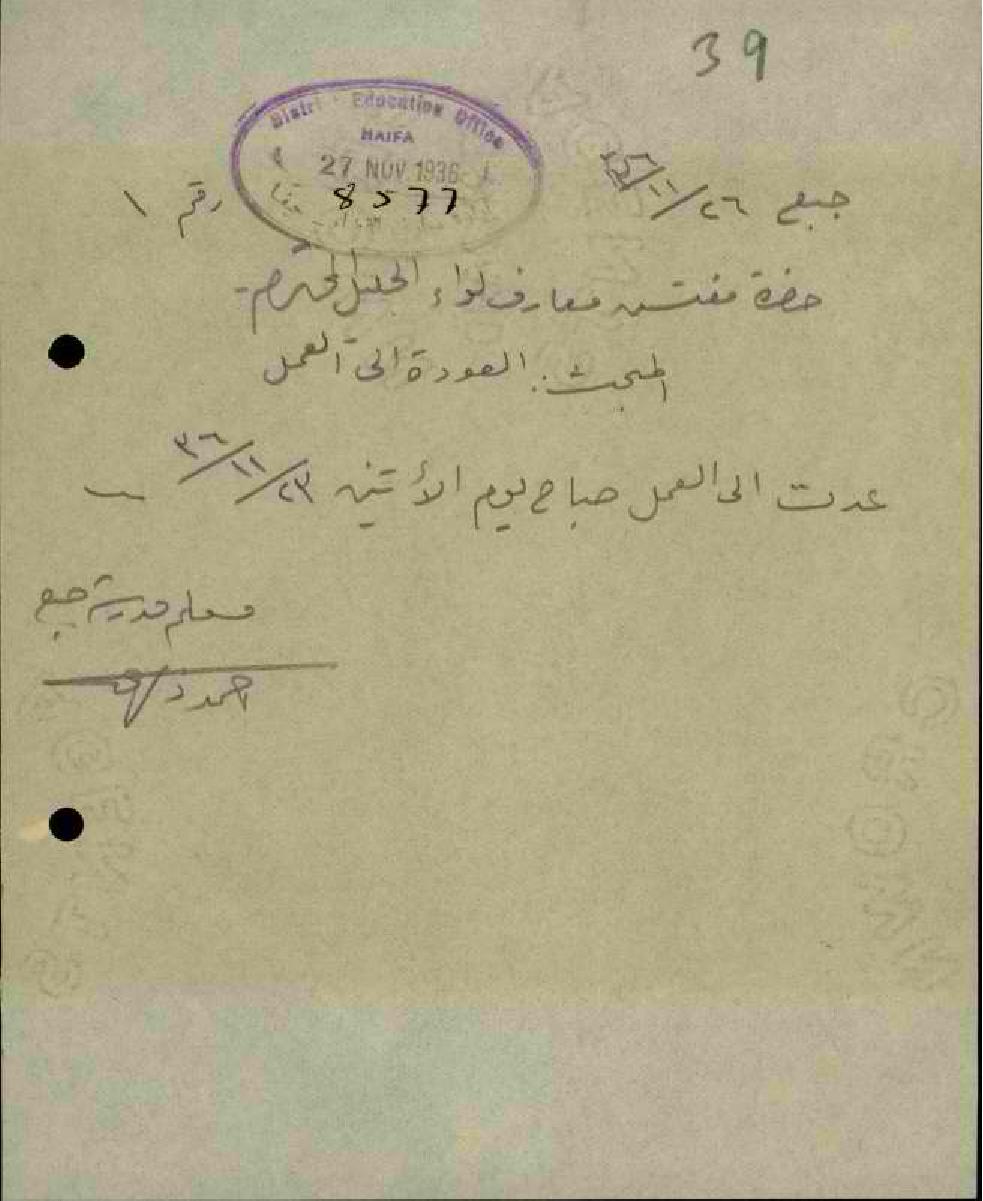 39
District Education Office
HAIFA
27 NOV 1936
8577
جبع ٢٦/١١/٣٦ رقم ١
حضرة مفتش معارف لواء الجليل المحترم -
المبحث: العودة الى العمل
عدت الى العمل صباح يوم الأثنين ٢٣/١١/٣٦
معلم مدرسة جبع
احمد